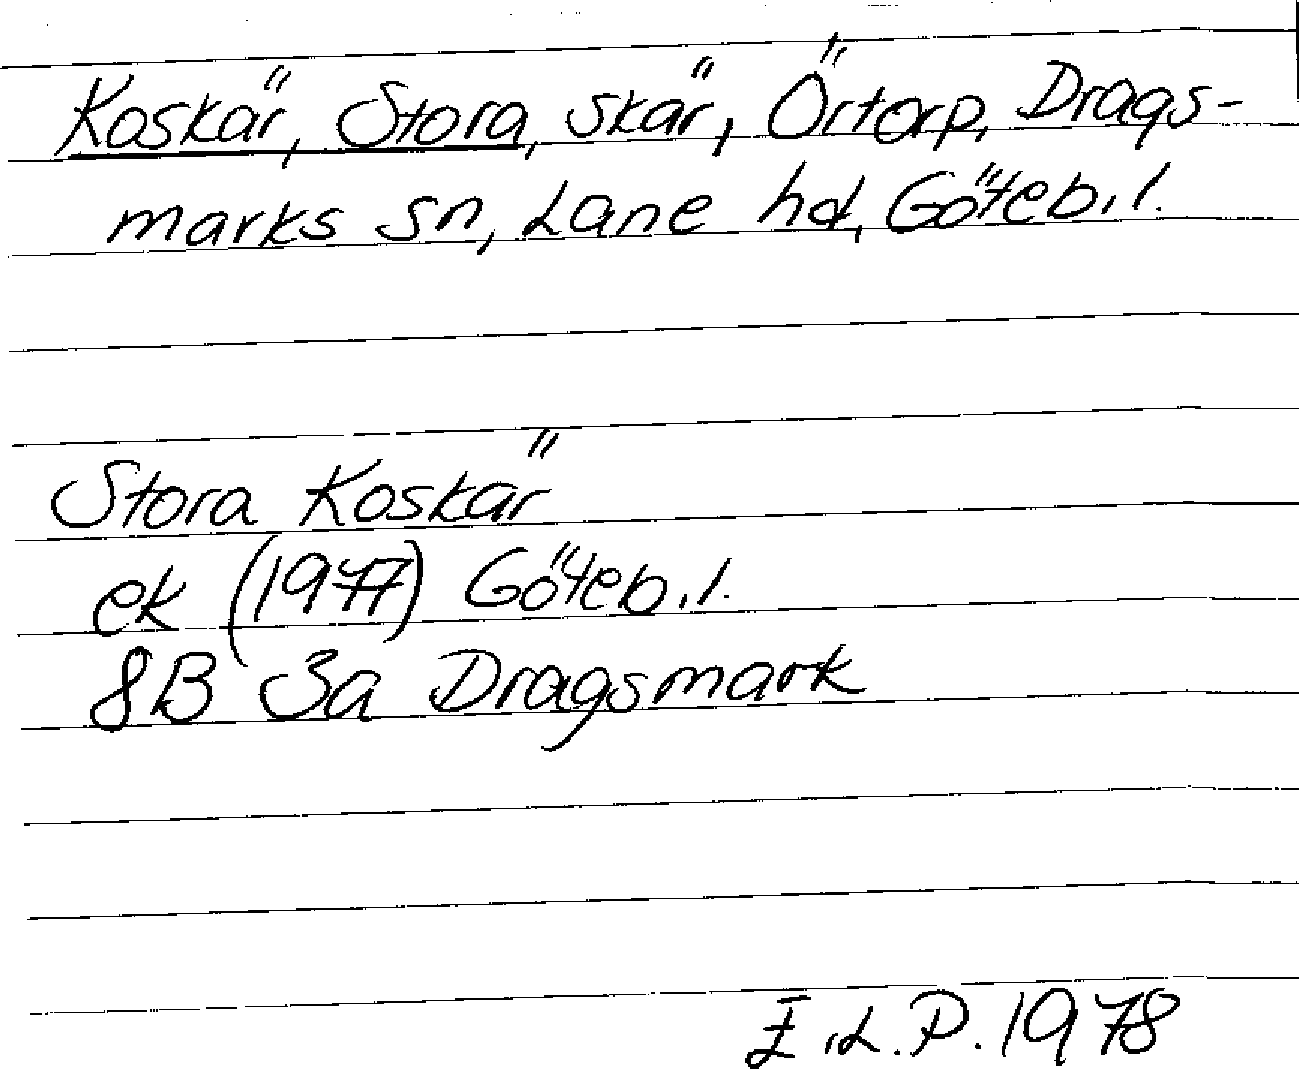 Koskär, Stora, skär, Örtorp, Drags-
marks sn, Lane hd, Göteb. l.
Stora Koskär
ek (1977) Göteb. l.
8B 3a Dragsmark
E.L.P. 1978